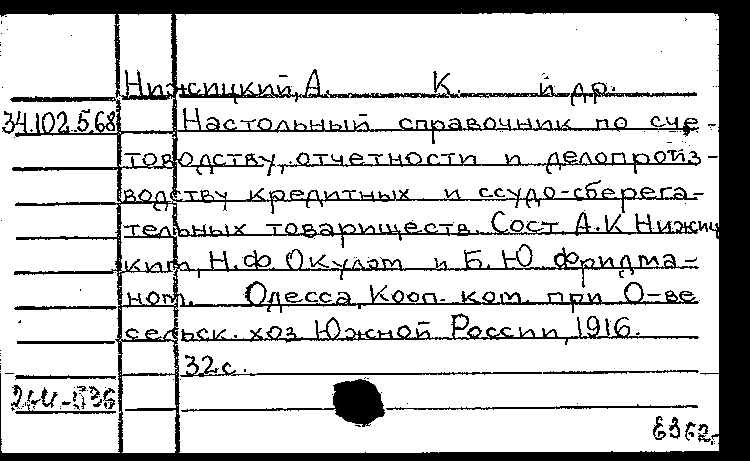 Нижицкий, А. К. и др.
34.102.568 Настольный справочник по сче-
товодству, отчетности и делопроиз-
водству кредитных и ссудо-сберега-
тельных товариществ. Сост. А.К. Нижиц
ким, Н.Ф. Окулэт и Б.Ю. Фридма-
ном. Одесса, Кооп. ком. при О-ве
сельск. хоз. Южной России, 1916.
32 с.